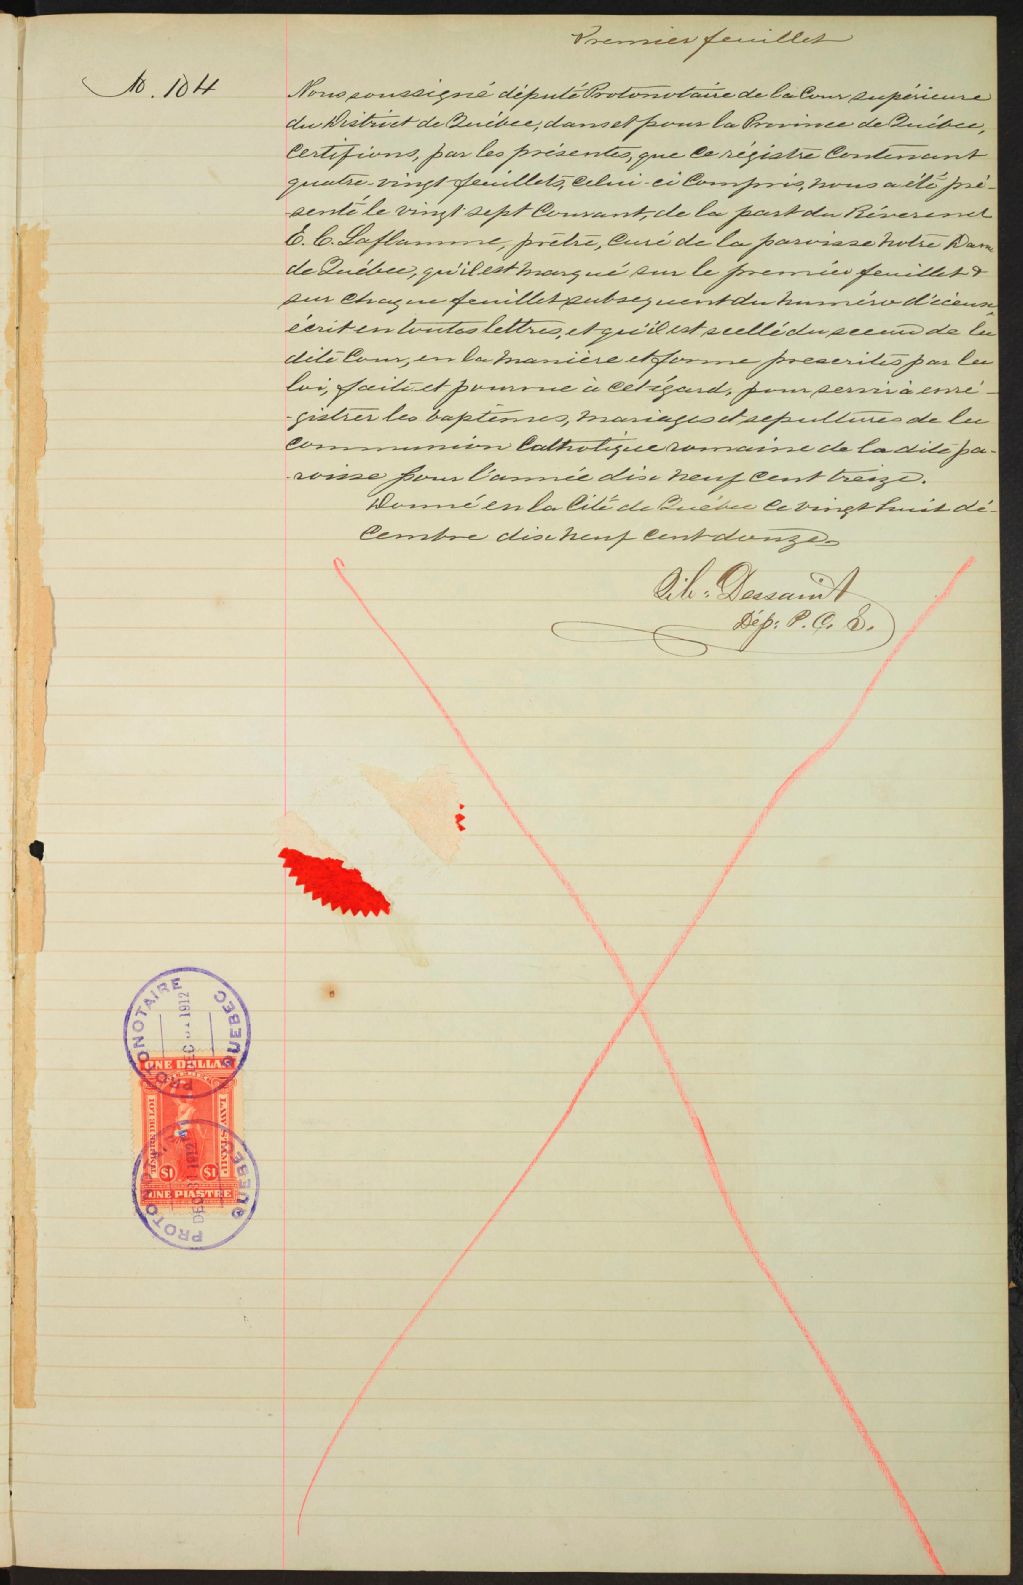 Premier feuillet
No. 104
Nous soussigné député Protonotaire de la Cour supérieure
du District de Québec, dans et pour la Province de Québec,
Certifions, par les présentes, que ce régistre contenant
quatre-vingt feuillets, celui-ci compris, nous a été pré-
-senté le vingt sept courant, de la part du Révérend
E. C. Laflamme, prêtre, curé de la paroisse Notre Dame
de Québec, qu'il est marqué sur le premier feuillet &
sur chaque feuillet subsequent du numéro d'iceux
écrit en toutes lettres, et qu'il est scellé du sceau de la
dite Cour, en la manière et forme prescrites par la
loi, faite et pourvue à cet égard, pour servir à enré-
-gistrer les baptêmes, mariages et sépultures de la
communion Catholique romaine de la dite pa-
-roisse pour l'année dix neuf cent treize.
Donné en la Cité de Québec ce vingt huit dé-
cembre dix neuf cent douze.
Dessaint
Dép: P. C. S.
PROTONOTAIRE QUEBEC
DEC 31 1912
ONE DOLLAR
LAW STAMP
$1 $1
UNE PIASTRE
PROTONOTAIRE QUEBEC
DEC 31 1912